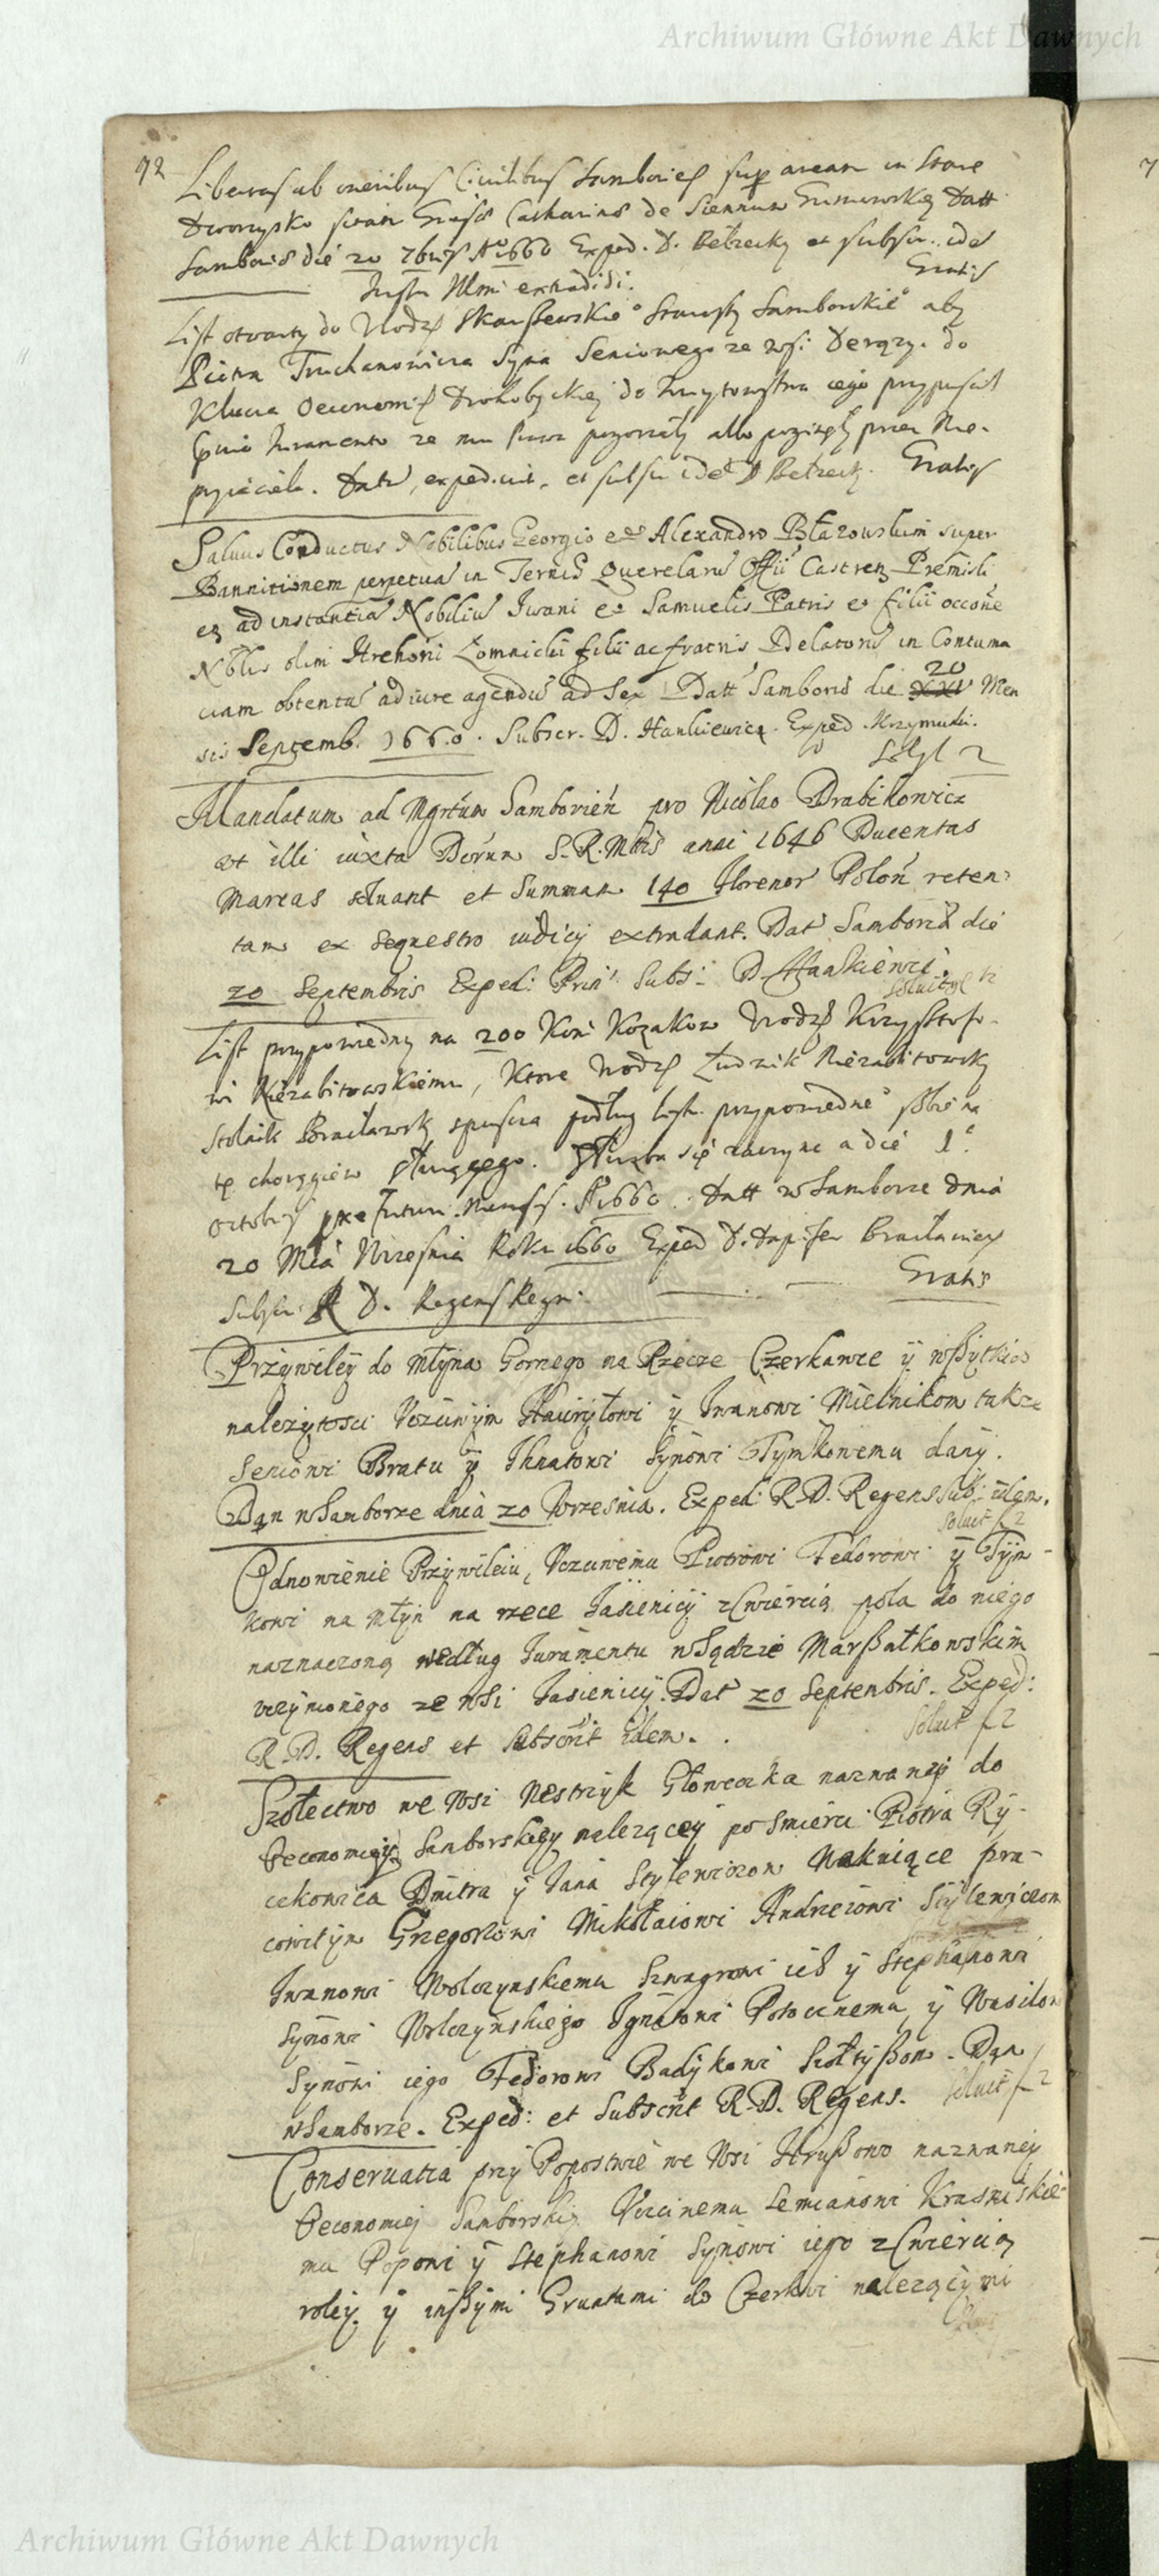 Archiwum Główne Akt Dawnych
92
Libertas ab oneribus Civilibus Samborien super aream in
Dworzysko Catharinae de Siennun Datt
Samboriae die 20 7bris Ao 1660 Exped. D. Bełzecky et subscr. idem
Gratis
extradidi.
List otwarty do Urodz Skarszewskie° Starosty Samborskie° aby
Piotra Truchanowicza Syna Seniowego ze wsi Derązy. do
Klucza Oeconomiej Drohobyckiej do przypuscił
Juramento ze nie przez Nie-
przyiaciela. Datt, expedivit, et subscr idem D Bełzecky. Gratis
Salvus Conductus Nobilibus Georgio et Alexandro Błazowskim super
Bannitionem perpetua in Ternis Querelaru Offii Castren Premisli
ex ad instantia Nobiliu Iwani et Samuelis Patris et filii occone
Nobilis olim Hrehorii Łomnickii filii ac fratris Delatoru in Contuma
ciam obtenta ad iure agendu ad Sex Datt Samboriae die 20 Men
sis Septemb. 1660. Subscr. D. Hankiewicz. Exped. Krzymuski.
2
Mandatum ad Mgrtum Samborien pro Nicolao Drabikowicz
ut illi iuxta S.R.Mttis anni 1646 Ducentas
Marcas solvant et Summam 140 florenor Polon reten
tam ex sequestro iudicij extradant. Dat Samboriae die
20 Septembris Exped: Subs: D. Hankiewicz.
List przypowiedny na 200 Koni Kozakow Urodz Krzysztofo-
wi Niezabitowskiemu, Ktore Urodz Ludwik Niezabitowsky
Stolnik Bracławsky spuscza podług listu przypowiedne° sobie na
tę chorągiew słuzącego. Słuzba się zaczyna a die 1a
Octobris Futuri. Mensis. Ao 1660. Datt w Samborze dnia
20 Mca Wrzesnia Roku 1660 Exped D. Dapifer Bracłavien
Subscr. R D. Regens Regni. Gratis
Przywiley do Młyna Gornego na Rzecze Czerkawce ÿ wszytkich
nalezytosci Vczciwym Hawryłowi ÿ Iwanowi Mielnikom takze
Seniowi Bratu ÿ Ihnatowi Synowi Tymkowemu dany.
Dan w Samborze dnia 20 Wrzesnia. Exped: R.D. Regens sub: idem.
Soluit f 2
Odnowienie Przywileiu, Vczciwemu Piotrowi Fedorowi ÿ Tym-
kowi na Młyn na rzece Jasienicy z Cwiercią pola do niego
naznaczoną według Juramentu w Sądzie Marszałkowskim
vczynionego ze wsi Jasienicy. Dat 20 Septembris. Exped:
R.D. Regens et subscrit idem. Soluit f 2
Szołectwo we Wsi Nestrzyk Głoweczka nazwaney do
Oeconomiey Samborskiey nalezącey po Smierci Piotra Ry-
cekowica Dmitra ÿ Jana Stylewiczow Wakuiące pra-
cowitym Gregorzowi Mikołaiowi Andrzeiowi Stylewiczom
Iwanowi Wolczynskiemu Szwagrowi ich ÿ Stephanowi
Synowi Wolczynskiego Ignatowi Potocznemu, ÿ Wasilow
Synowi iego Fedorowi Badykowi Szołtyszom. Dan
w Samborze. Exped: et Subscrit R.D. Regens. Soluit f 2
Conseruatia przy Popostwie we Wsi Hruszowo nazwaney
Oeconomiej Samborskiey Vczciwemu Semianowi
mu Popowi ÿ Stephanowi Synowi iego z Cwiercią
roley ÿ inszymi Gruntami do Czerkwi nalezącymi
Archiwum Główne Akt Dawnych